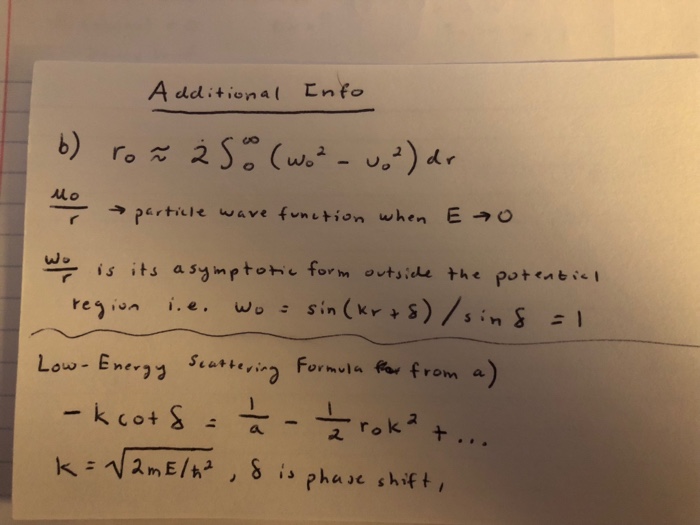 Additional Info
b) r₀ ≈ 2 ∫₀^∞ (w₀² - υ₀²) dr
μ₀/r → particle wave function when E → 0
w₀/r is its asymptotic form outside the potential
region i.e. w₀ = sin(kr + δ) / sin δ = 1
Low-Energy Scattering Formula from a)
- k cot δ = 1/a - 1/2 r₀k² + ...
k = √(2mE/ħ²) , δ is phase shift,